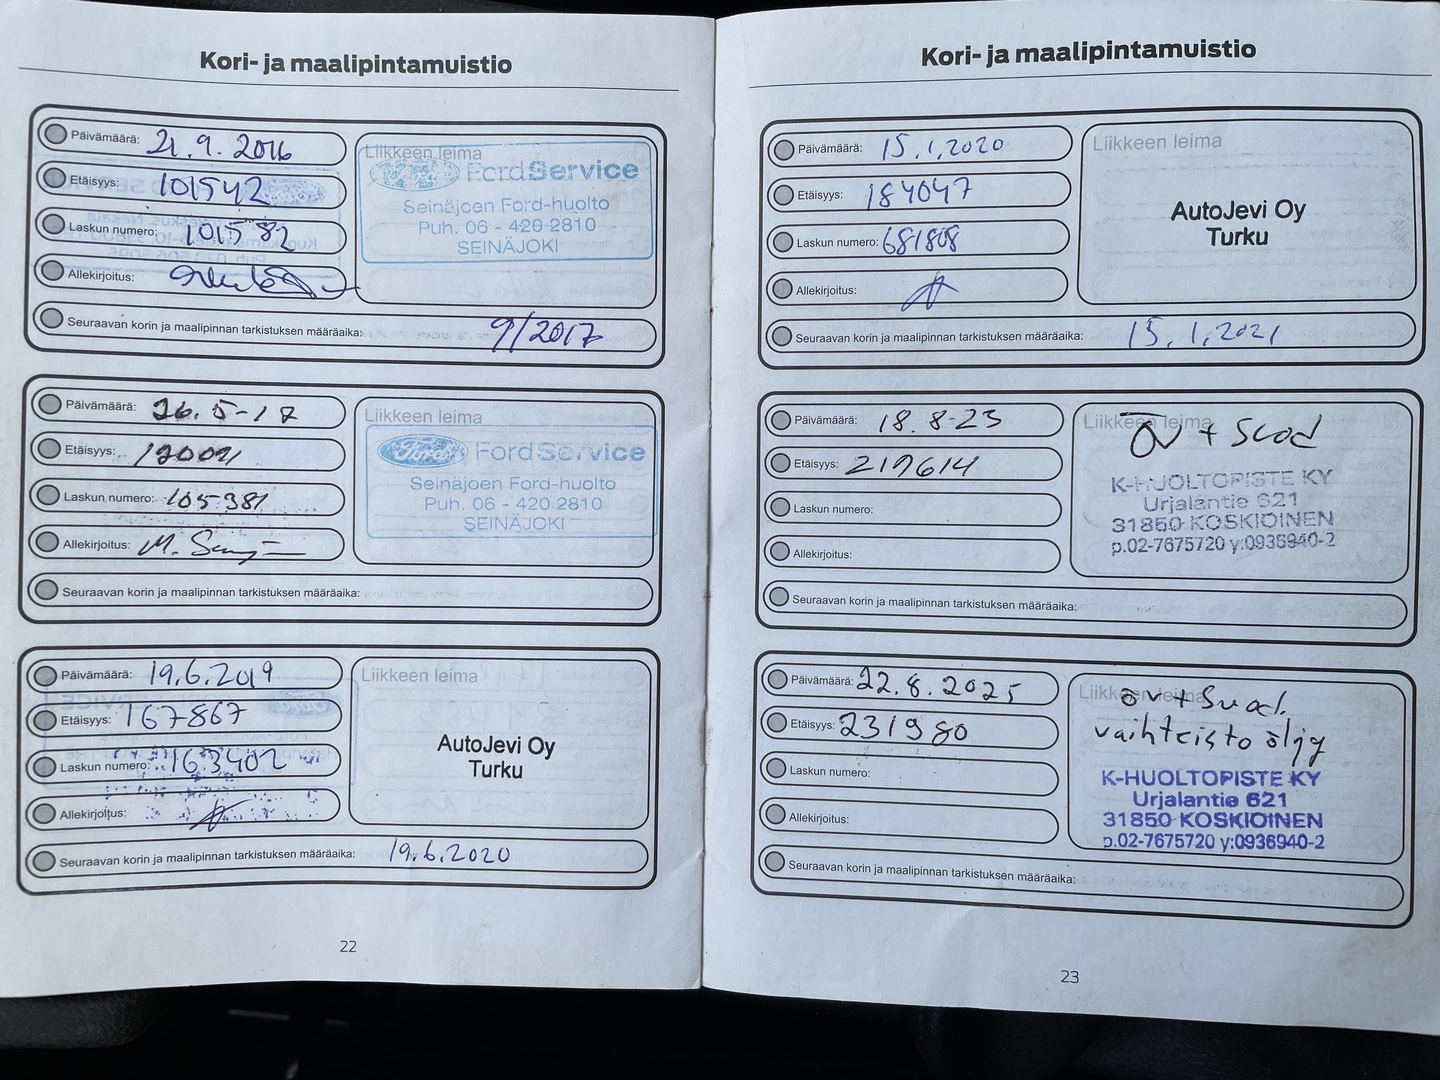 Kori- ja maalipintamuistio
Päivämäärä: 21.9.2016
Etäisyys: 101542
Laskun numero: 101582
Allekirjoitus:
Seuraavan korin ja maalipinnan tarkistuksen määräaika: 9/2017
Liikkeen leima
Ford Service
Seinäjoen Ford-huolto
Puh. 06 - 420 2810
SEINÄJOKI
Päivämäärä: 26.5-17
Etäisyys:
Laskun numero: 105381
Allekirjoitus:
Seuraavan korin ja maalipinnan tarkistuksen määräaika:
Liikkeen leima
Ford
Ford Service
Seinäjoen Ford-huolto
Puh. 06 - 420 2810
SEINÄJOKI
Päivämäärä: 19.6.2019
Etäisyys: 167867
Laskun numero: 163402
Allekirjoitus:
Seuraavan korin ja maalipinnan tarkistuksen määräaika: 19.6.2020
Liikkeen leima
AutoJevi Oy
Turku
22
Kori- ja maalipintamuistio
Päivämäärä: 15.1.2020
Etäisyys: 184047
Laskun numero: 681808
Allekirjoitus:
Seuraavan korin ja maalipinnan tarkistuksen määräaika: 15.1.2021
Liikkeen leima
AutoJevi Oy
Turku
Päivämäärä: 18.8-23
Etäisyys: 219614
Laskun numero:
Allekirjoitus:
Seuraavan korin ja maalipinnan tarkistuksen määräaika:
Liikkeen leima
öv + Suod
K-HUOLTOPISTE KY
Urjalantie 621
31850 KOSKIOINEN
p.02-7675720 y:0936940-2
Päivämäärä: 22.8.2025
Etäisyys: 231980
Laskun numero:
Allekirjoitus:
Seuraavan korin ja maalipinnan tarkistuksen määräaika:
Liikkeen leima
öv + Suod.
vaihteisto öljy
K-HUOLTOPISTE KY
Urjalantie 621
31850 KOSKIOINEN
p.02-7675720 y:0936940-2
23